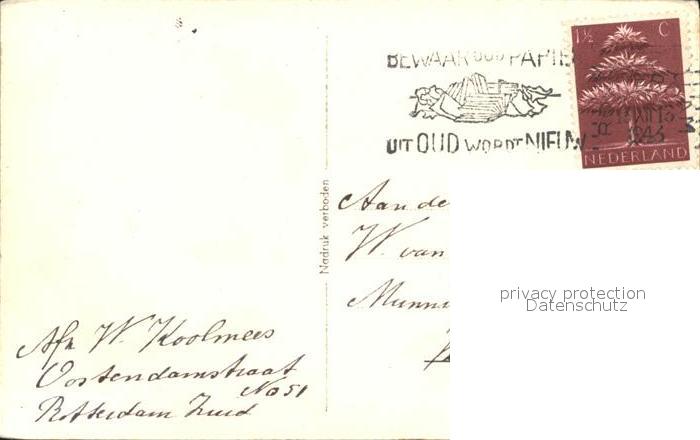 BEWAAR OUD PAPIE
UIT OUD WORDT NIEUW
1½ C
XII 15
1943
NEDERLAND
Nadruk verboden
Aan de
W. van
Munni
privacy protection
Datenschutz
Afz W. Koolmees
Oostendamstraat
No 51
Rotterdam Zuid